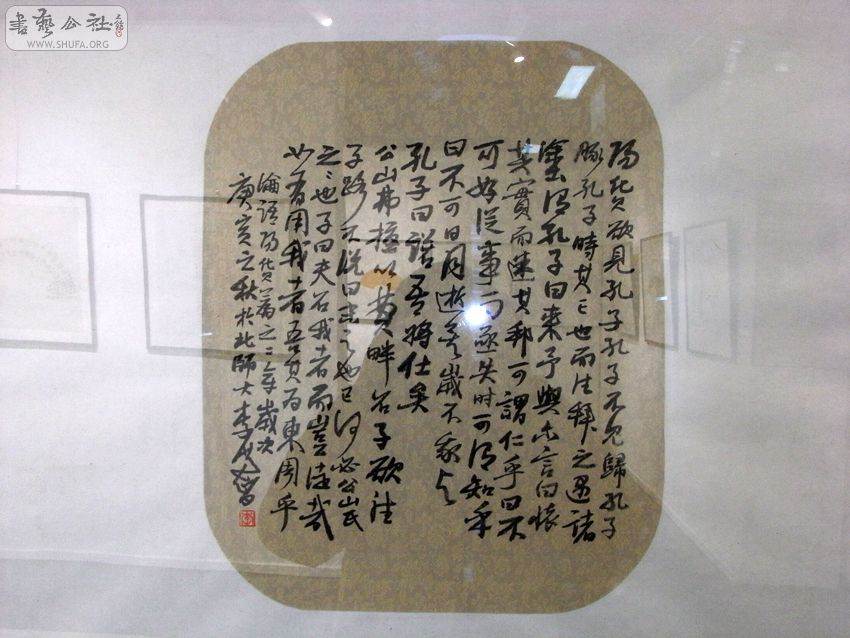 書藝公社
WWW.SHUFA.ORG
陽貨欲見孔子孔子不見歸孔子
豚孔子時其亡也而往拜之遇諸
塗謂孔子曰來予與爾言曰懷
其寶而迷其邦可謂仁乎曰不
可好從事而亟失時可謂知乎
曰不可日月逝矣歲不我與
孔子曰諾吾將仕矣
公山弗擾以費畔召子欲往
子路不說曰末之也已何必公山氏
之之也子曰夫召我者而豈徒哉
如有用我者吾其為東周乎
論語陽貨篇之二章歲次
庚寅之秋於北師大李